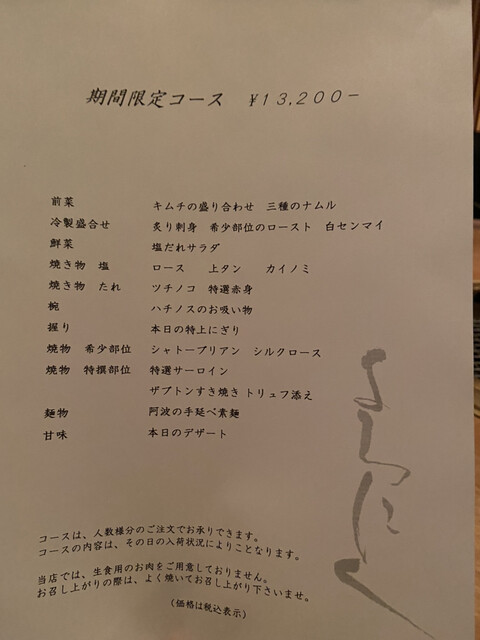 期間限定コース　￥13,200－
前菜　キムチの盛り合わせ　三種のナムル
冷製盛合せ　炙り刺身　希少部位のロースト　白センマイ
鮮菜　塩だれサラダ
焼き物　塩　ロース　上タン　カイノミ
焼き物　たれ　ツチノコ　特選赤身
椀　ハチノスのお吸い物
握り　本日の特上にぎり
焼物　希少部位　シャトーブリアン　シルクロース
焼物　特撰部位　特選サーロイン
ザブトンすき焼き トリュフ添え
麺物　阿波の手延べ素麺
甘味　本日のデザート
よろにく
コースは、人数様分のご注文でお承りできます。
コースの内容は、その日の入荷状況によりことなります。
当店では、生食用のお肉をご用意しておりません。
お召し上がりの際は、よく焼いてお召し上がり下さいませ。
（価格は税込表示）